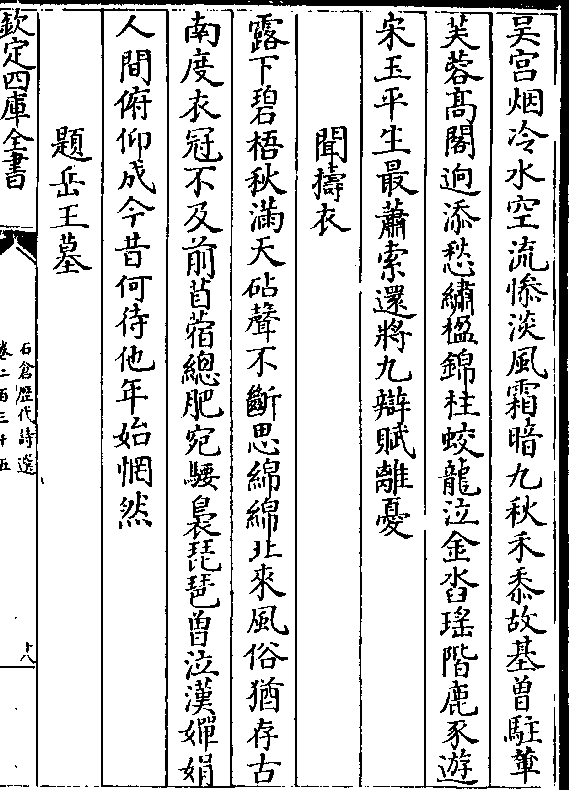 吴宫烟冷水空流慘淡風霜暗九秋禾黍故基曾駐輦
芙蓉髙閣逈添愁繡楹錦柱蛟龍泣金沓瑤階鹿豕遊
宋玉平生最蕭索還將九辯賦離憂
聞擣衣
露下碧梧秋滿天砧聲不斷思綿綿北來風俗猶存古
南度衣冠不及前苜蓿總肥宛騕褭琵琶曾泣漢嬋娟
人間俯仰成今昔何待他年始惘然
題岳王墓
欽定四庫全書
石倉歴代詩選
卷二百三十五
十八